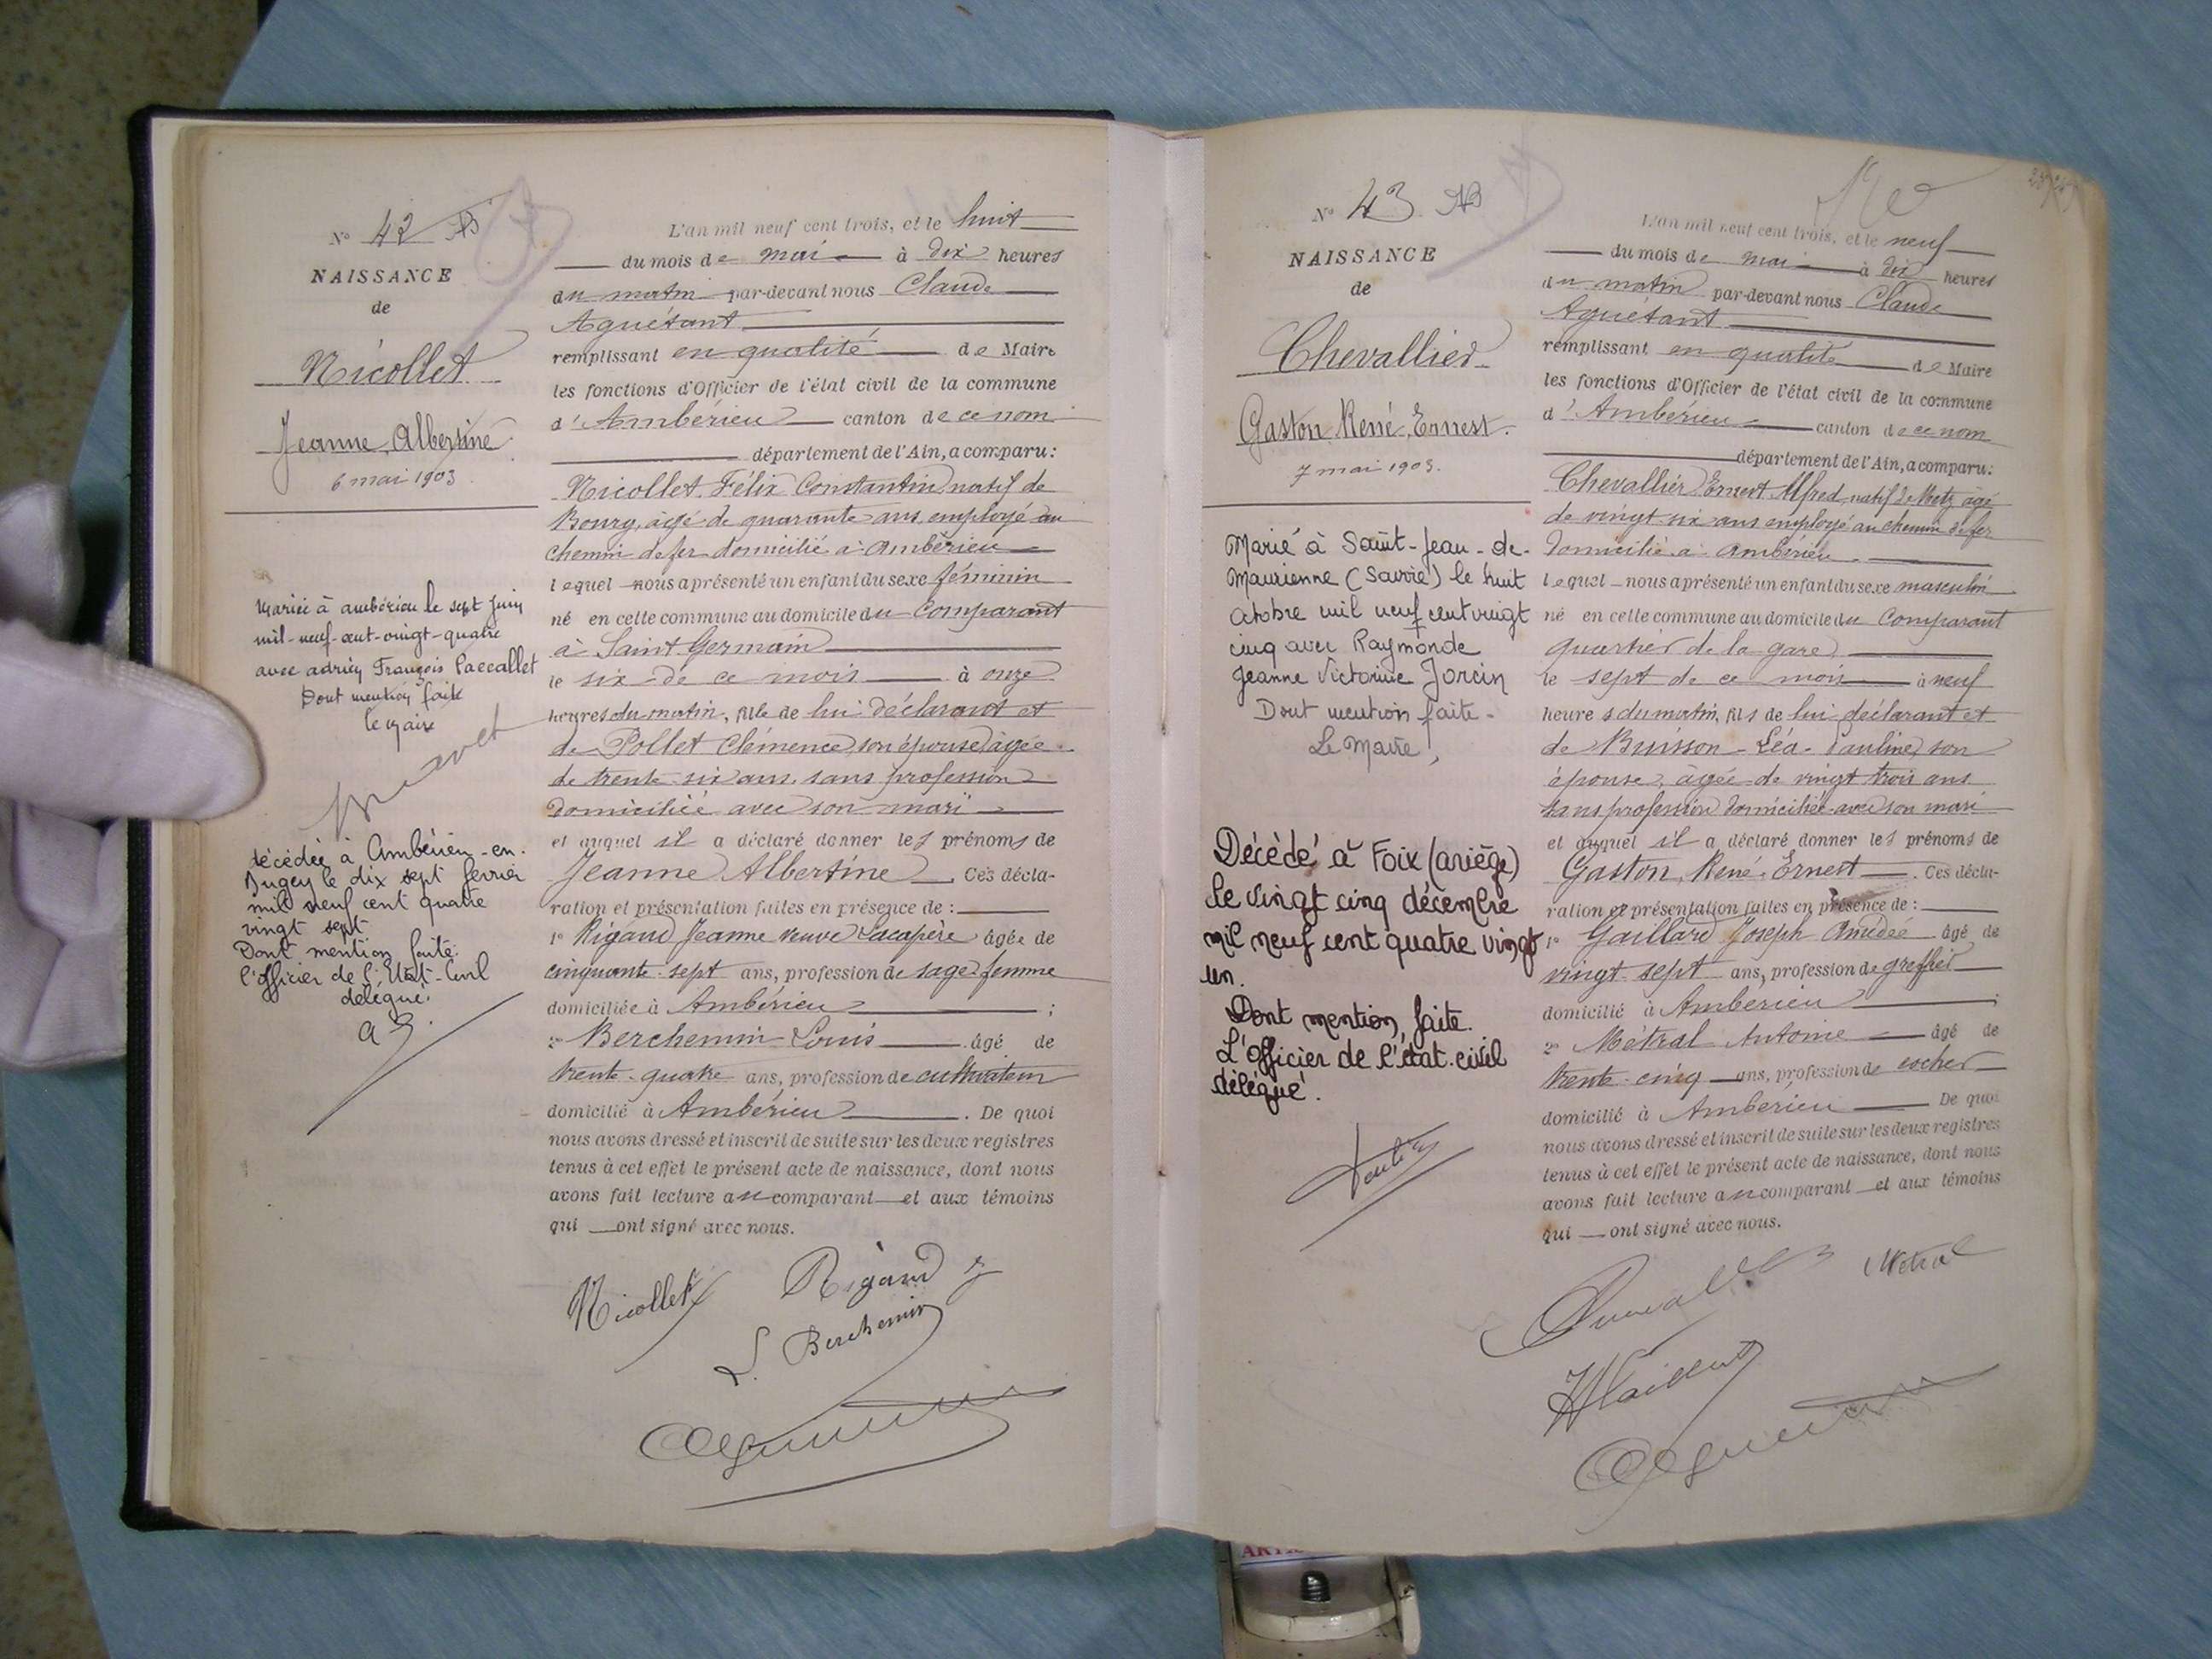 N° 42 AB
NAISSANCE
de
Nicollet
Jeanne, Albertine
6 mai 1903
Mariée à Ambérieu le sept juin
mil-neuf-cent-vingt-quatre
avec adrien François Paccallet
Dont mention faite
le maire
décédée à Ambérieu-en-
Bugey le dix sept février
mil neuf cent quatre
vingt sept
Dont mention faite.
l'officier de l'Etat-Civil
délégué.
L'an mil neuf cent trois, et le huit
du mois de mai à dix heures
du matin par-devant nous Claude
Aguétant
remplissant en qualité de Maire
les fonctions d'Officier de l'état civil de la commune
d'Ambérieu canton de ce nom
département de l'Ain, a comparu:
Nicollet Félix Constantin natif de
Bourg, âgé de quarante ans, employé au
chemin de fer domicilié à Ambérieu
lequel nous a présenté un enfant du sexe féminin
né en cette commune au domicile du Comparant
à Saint Germain
le six de ce mois à onze
heures du matin, fille de lui déclarant et
de Pollet Clémence, son épouse, âgée
de trente six ans, sans profession
domiciliée avec son mari
et auquel il a déclaré donner les prénoms de
Jeanne Albertine. Ces décla-
ration et présentation faites en présence de :
1° Rigaud Jeanne veuve Lacapère âgée de
cinquante-sept ans, profession de sage femme
domiciliée à Ambérieu ;
2° Berchemin Louis âgé de
trente-quatre ans, profession de cultivateur
domicilié à Ambérieu. De quoi
nous avons dressé et inscrit de suite sur les deux registres
tenus à cet effet le présent acte de naissance, dont nous
avons fait lecture au comparant et aux témoins
qui ont signé avec nous.
Nicollet Rigaud
L. Berchemin
N° 43 AB
NAISSANCE
de
Chevallier
Gaston, René, Ernest.
7 mai 1903.
Marié à Saint-Jean-de-
Maurienne (Savoie) le huit
octobre mil neuf cent vingt
cinq avec Raymonde
Jeanne Victorine Jorcin
Dont mention faite.
Le Maire,
Décédé à Foix (ariège)
le vingt cinq décembre
mil neuf cent quatre vingt
un.
Dont mention faite.
L'officier de l'état-civil
délégué.
L'an mil neuf cent trois, et le neuf
du mois de mai à dix heures
du matin par-devant nous Claude
Aguétant
remplissant en qualité de Maire
les fonctions d'Officier de l'état civil de la commune
d'Ambérieu canton de ce nom
département de l'Ain, a comparu:
Chevallier Ernest Alfred, natif de Metz, âgé
de vingt six ans employé au chemin de fer
domicilié à Ambérieu
lequel nous a présenté un enfant du sexe masculin
né en cette commune au domicile du Comparant
quartier de la gare
le sept de ce mois à neuf
heures du matin, fils de lui déclarant et
de Buisson Léa Pauline, son
épouse, âgée de vingt trois ans
sans profession domiciliée avec son mari
et auquel il a déclaré donner les prénoms de
Gaston, René, Ernest. Ces décla-
ration et présentation faites en présence de :
1° Gaillard Joseph Amédée âgé de
vingt-sept ans, profession de greffier
domicilié à Ambérieu ;
2° Métral Antoine âgé de
trente-cinq ans, profession de cocher
domicilié à Ambérieu De quoi
nous avons dressé et inscrit de suite sur les deux registres
tenus à cet effet le présent acte de naissance, dont nous
avons fait lecture au comparant et aux témoins
qui ont signé avec nous.
Métral